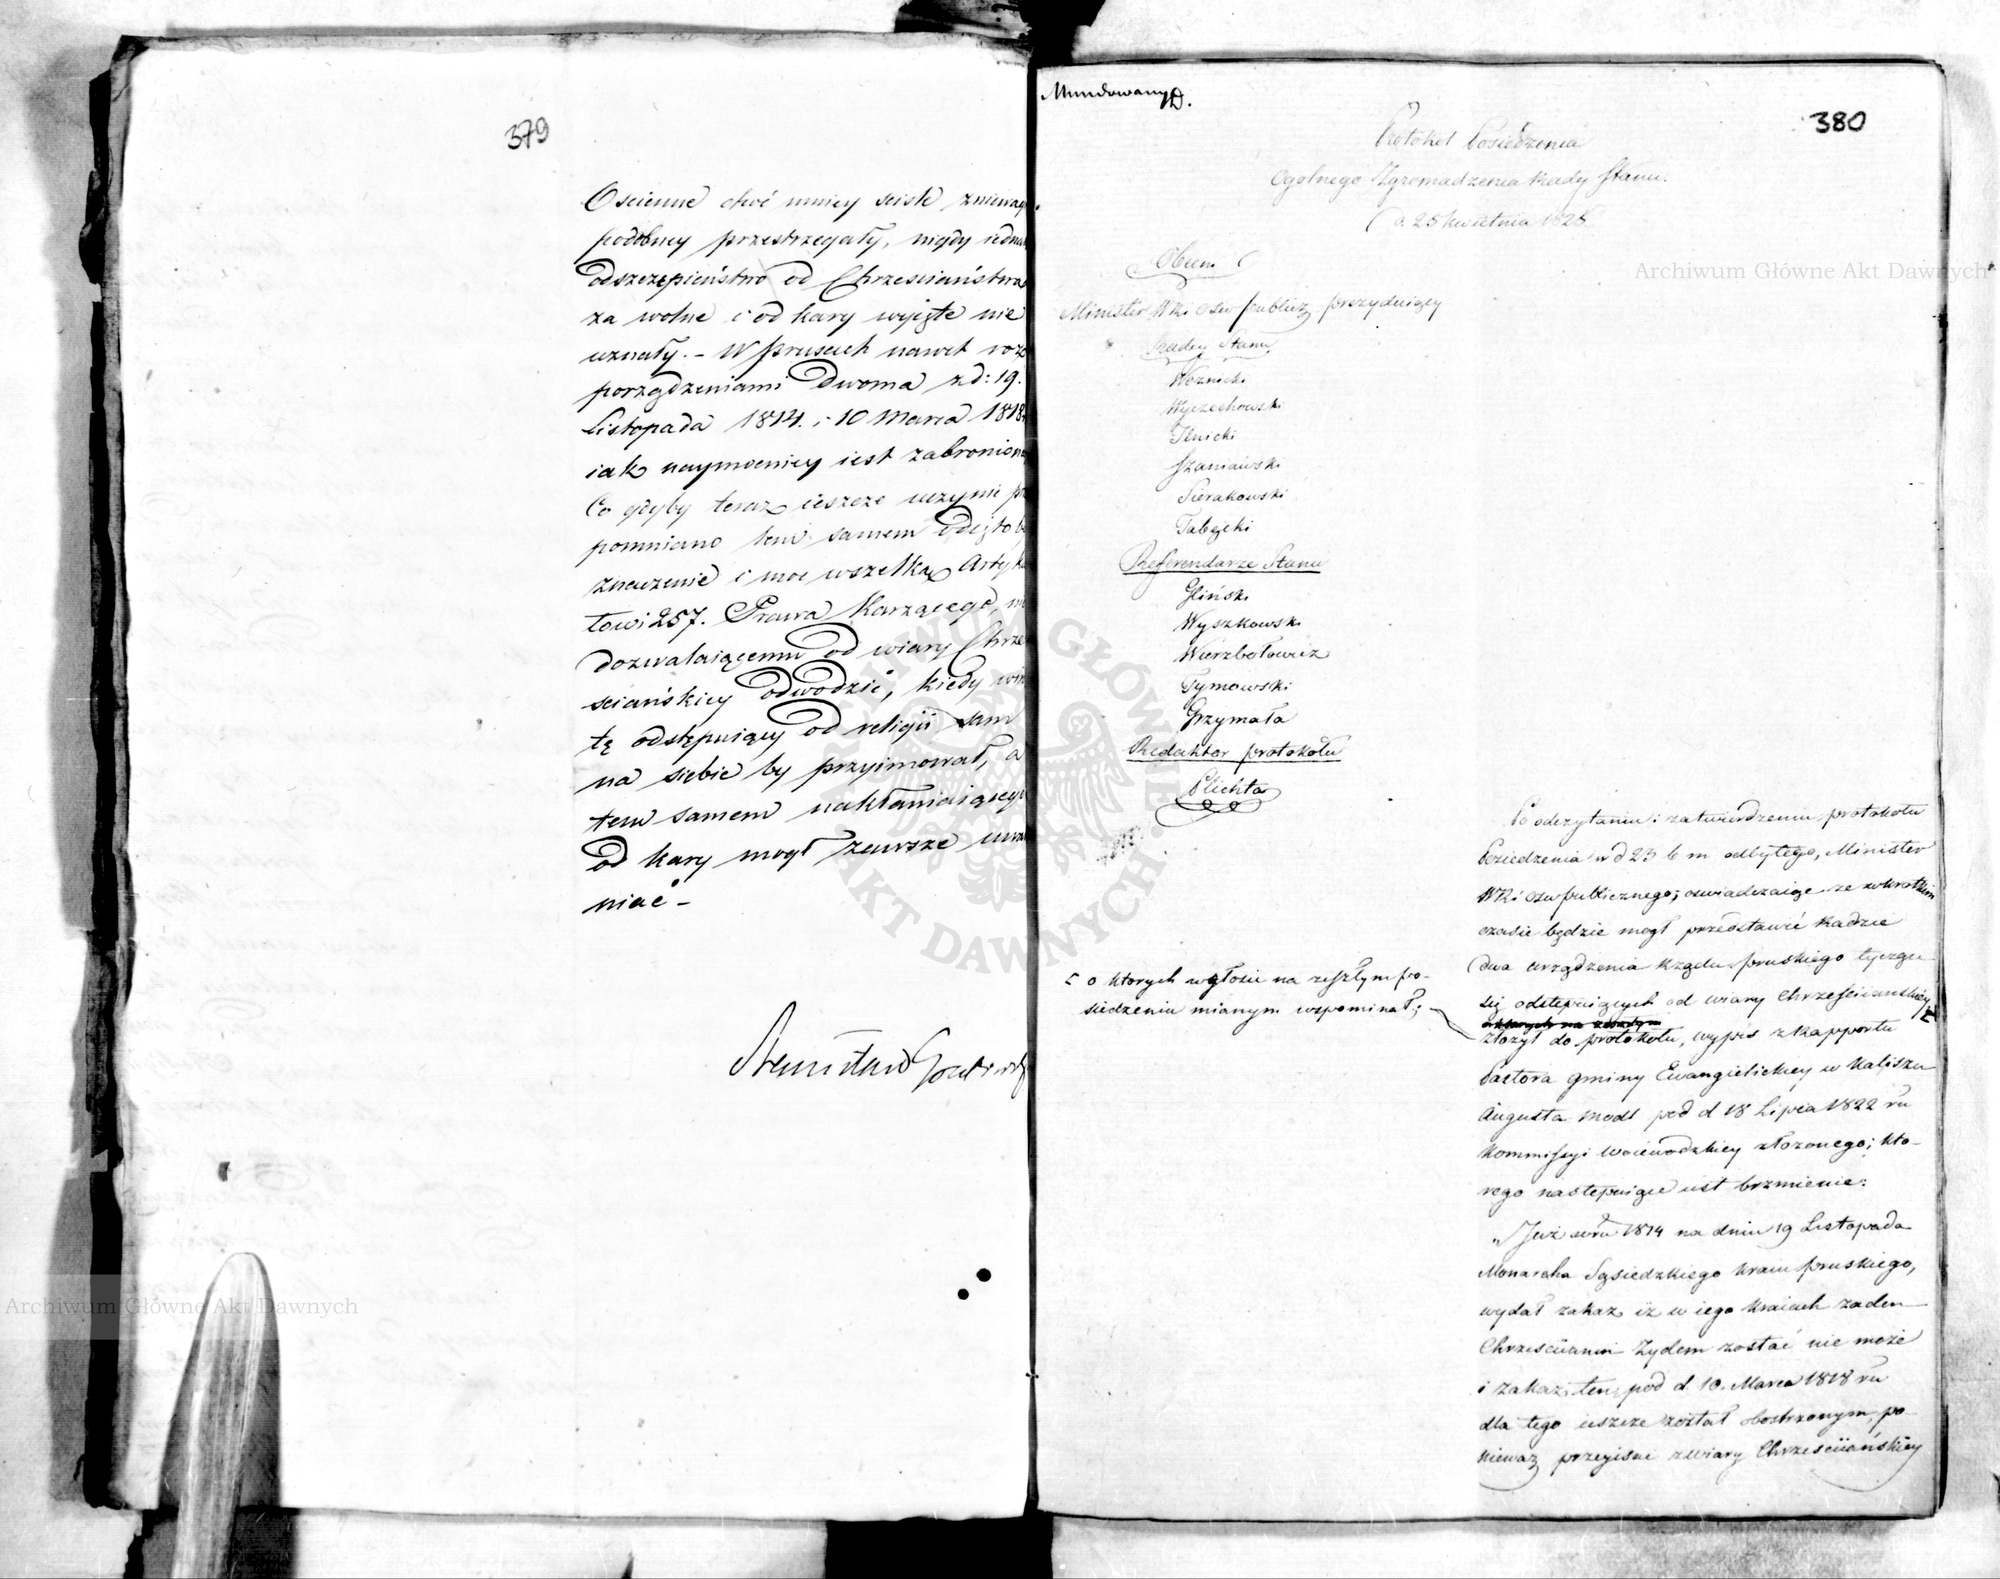 379
Oscienne choć mniey scisle zniewag
podobney przestrzegały, nigdy iedna
odszczepieństwo od Chrzesciaństwa
za wolne i od kary wyięte nie
uznały. – W Prusach nawet roz
porządzeniami dwoma z d: 19.
Listopada 1814. i 10 Marca 1818.
iak naymocniey iest zabronione
Co gdyby teraz ieszcze uczynić
pomniano tem samem odięto by
znaczenie i moc wszelką Arty
łowi 257. Prawa Karzącego, nie
dozwalaiącemu od wiary Chrze
sciańskiey odwodzić, kiedy
tę odstępuiący od religii sam
na siebie by przyimował, a
tem samem nakłaniaiącego
od kary mogł zawsze
niać –
Mundowany
380
Protokol Posiedzenia
Ogolnego Zgromadzenia Rady Stanu.
d. 25 kwietnia 1828
Obecni
Minister Wki Osw publicz prezyduiący
Radcy Stanu
Woznicki
Wyczechowski
Ilnicki
Szaniawski
Sierakowski
Tabęcki
Referendarze Stanu
Gliński
Wyszkowski
Wierzbołowicz
Tymowski
Grzymała
Redaktor protokołu
Plichta
Po odczytaniu i zatwierdzeniu protokołu
Posiedzenia w d 23 b m odbytego, Minister
WR i Osw publicznego; oswiadczaiąc ze w krotkim
czasie będzie mogł przedstawić Radzie
dwa urządzenia Rządu pruskiego tyczące
się odstępuiących od wiary Chrzesciianskiey
o ktorych na zeszłym
o ktorych w głosie na zeszłym po-
siedzeniu mianym wspominał;
złozył do protokołu, wypis z Rapportu
Pastora gminy Ewangielickiey w Kaliszu
Augusta Modl pod d 18 Lipca 1822 ru
Kommissyi Woiewodzkiey złozonego; kto-
rego następuiące iest brzmienie:
„Juz w ru 1814 na dniu 19 Listopada
Monarcha Sąsiedzkiego kraiu pruskiego,
wydał zakaz iz w iego kraiach zaden
Chrzesciianin Zydem zostać nie może
i zakaz ten pod d. 10. Marca 1818 ru
dla tego ieszcze został obostrzonym, po
niewaz przeyscie z wiary Chrzesciiańskiey
Archiwum Główne Akt Dawnych
Archiwum Główne Akt Dawnych
ARCHIWUM GŁÓWNE AKT DAWNYCH